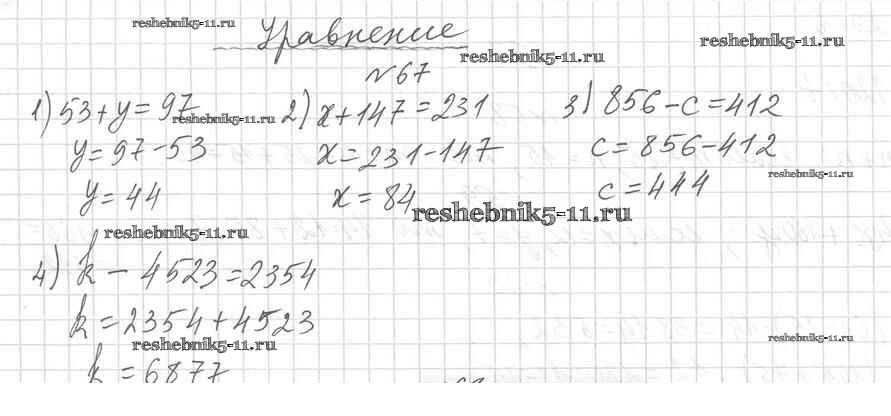 Уравнение
№67
1) 53+y=97
y=97-53
y=44
2) x+147=231
x=231-147
x=84
3) 856-c=412
c=856-412
c=444
4) k-4523=2354
k=2354+4523
k=6877
reshebnik5-11.ru
reshebnik5-11.ru
reshebnik5-11.ru
reshebnik5-11.ru
reshebnik5-11.ru
reshebnik5-11.ru
reshebnik5-11.ru
reshebnik5-11.ru
reshebnik5-11.ru